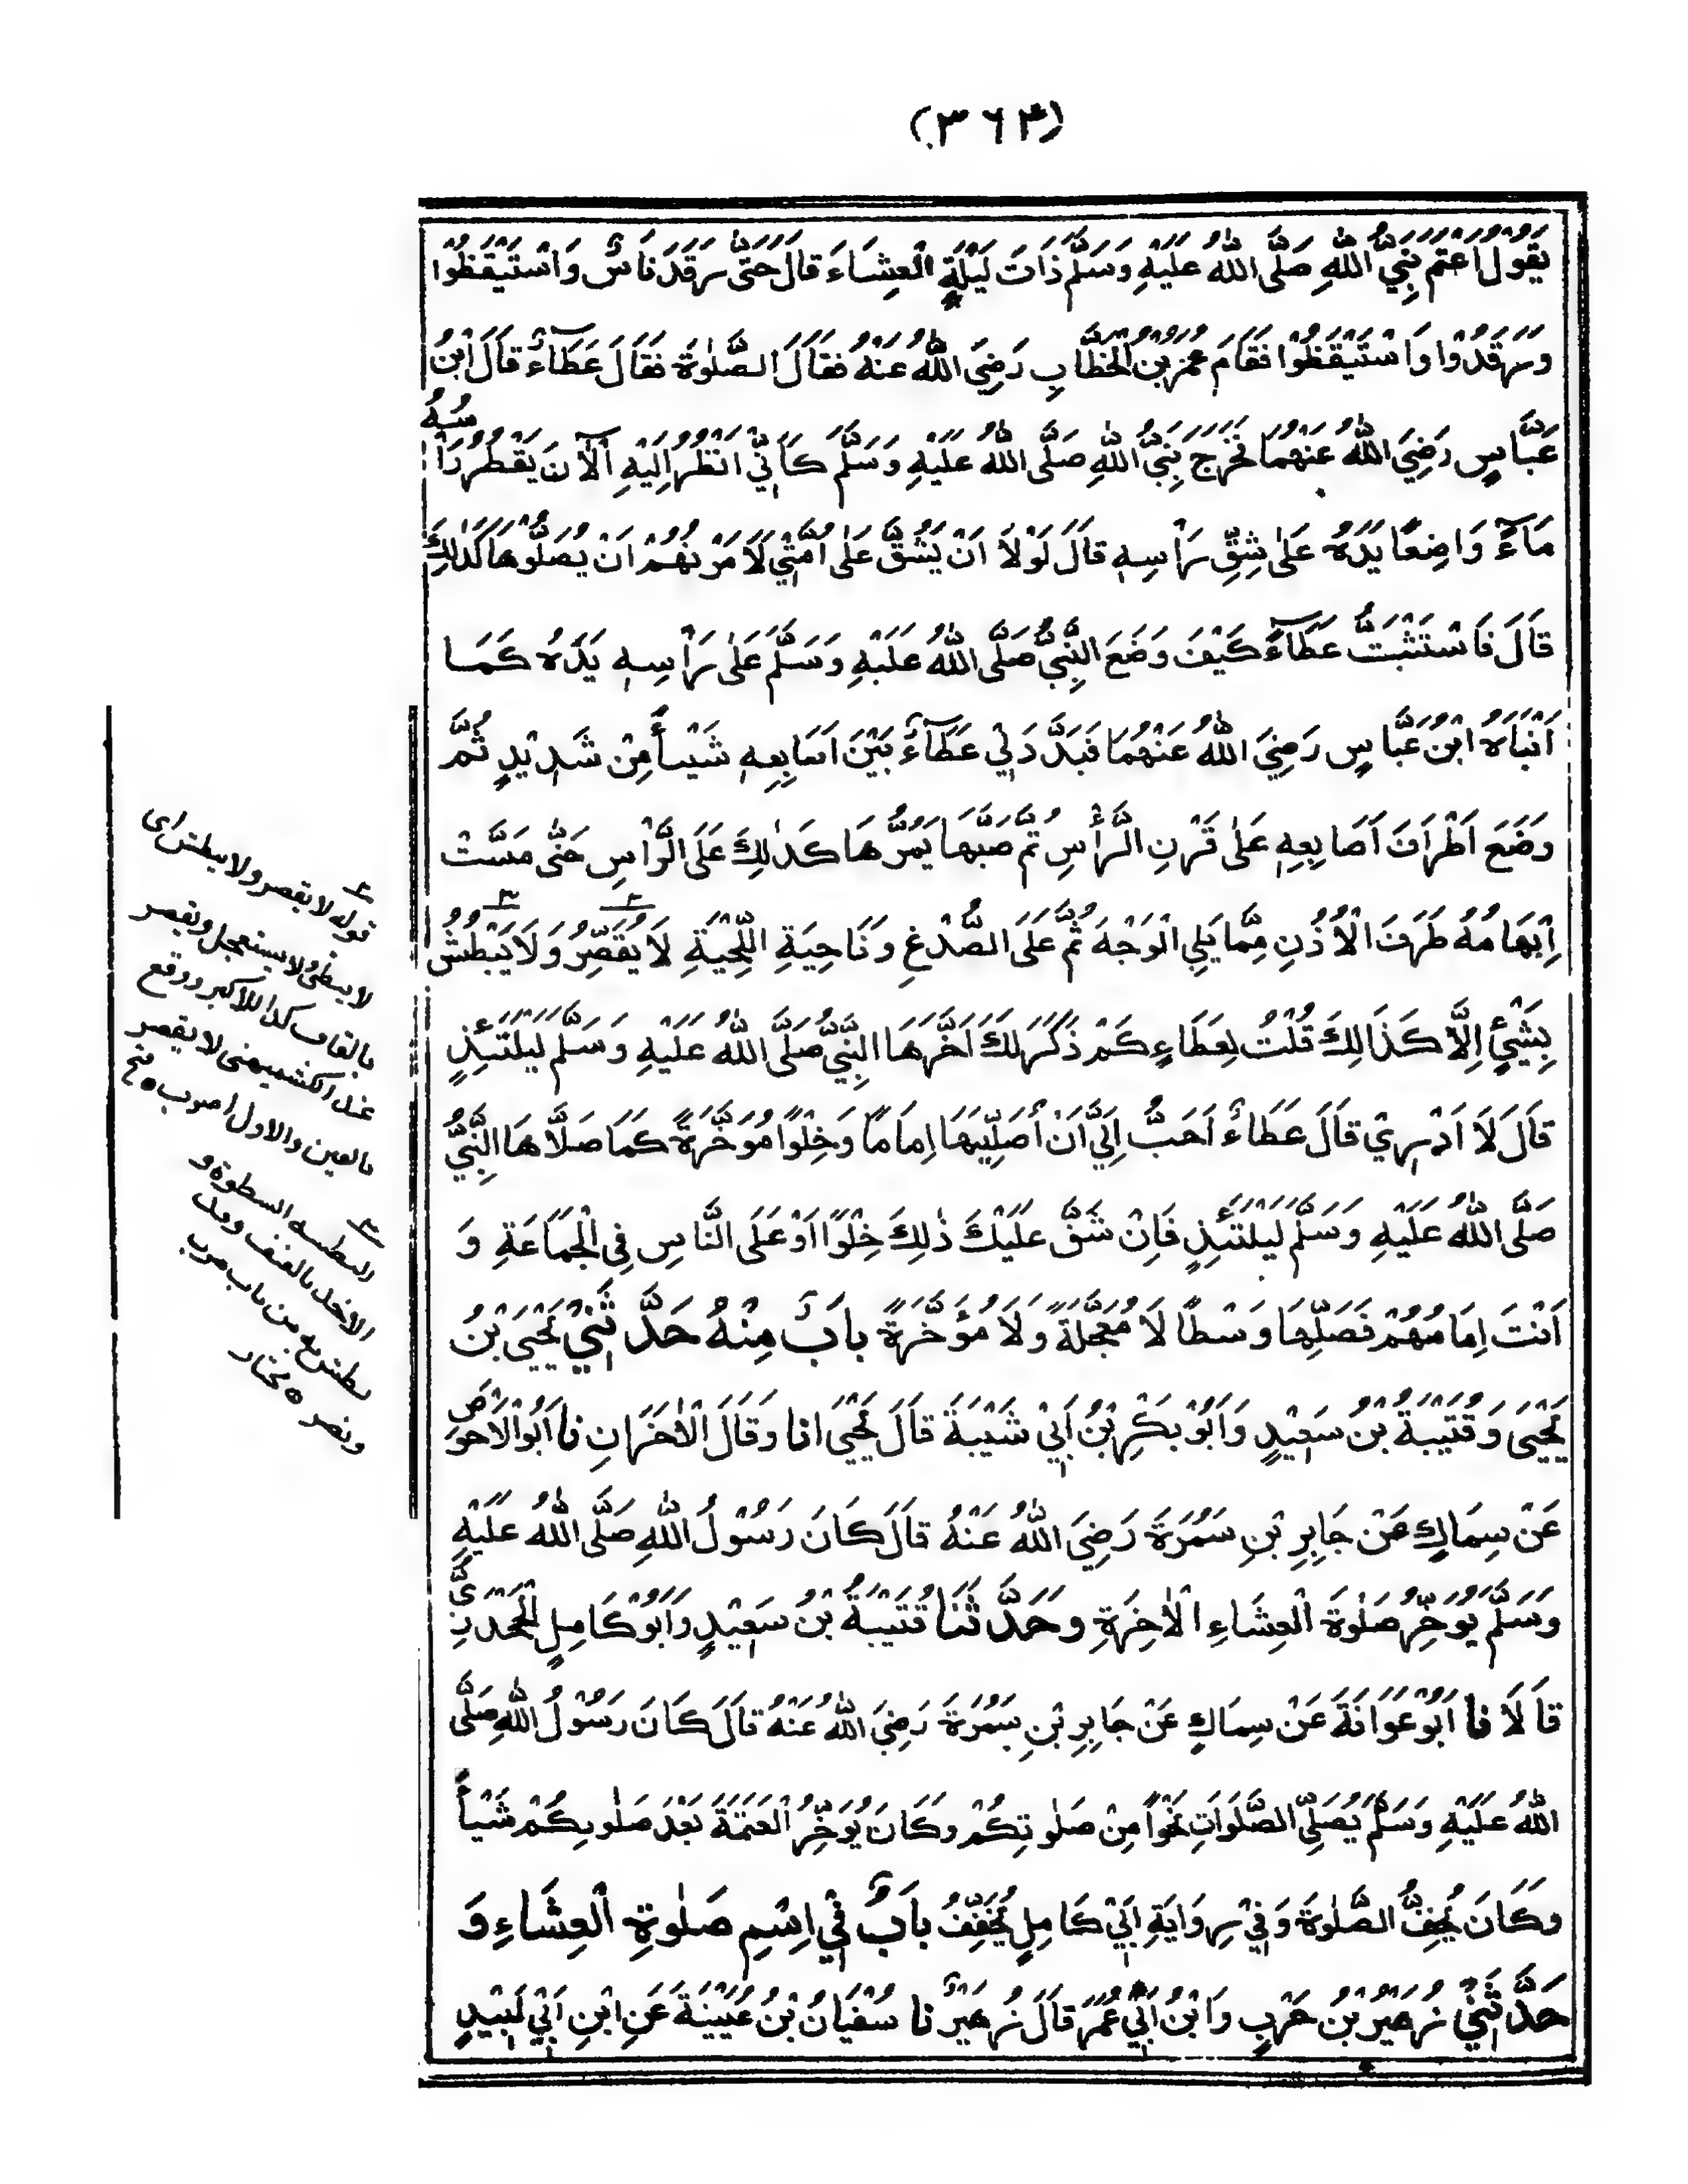 (٣٦٤)
يَقُوْلُ اَعْتَمَ نَبِيُّ اللهِ صَلَّى اللهُ عَلَيْهِ وَسَلَّمَ ذَاتَ لَيْلَةٍ الْعِشَاءَ قَالَ حَتّٰى رَقَدَ نَاسٌ وَاسْتَيْقَظُوْا
وَرَقَدُوْا وَاسْتَيْقَظُوْا فَقَامَ عُمَرُ بْنُ الْخَطَّابِ رَضِيَ اللهُ عَنْهُ فَقَالَ الصَّلٰوةَ فَقَالَ عَطَآءٌ قَالَ ابْنُ
عَبَّاسٍ رَضِيَ اللهُ عَنْهُمَا فَخَرَجَ نَبِيُّ اللهِ صَلَّى اللهُ عَلَيْهِ وَسَلَّمَ كَاَنِّيْ اَنْظُرُ اِلَيْهِ الْآنَ يَقْطُرُ رَاْسُهُ
مَآءً وَاضِعًا يَدَهُ عَلٰى شِقِّ رَاْسِهٖ قَالَ لَوْلَا اَنْ يَشُقَّ عَلٰى اُمَّتِيْ لَاَمَرْتُهُمْ اَنْ يُصَلُّوْهَا كَذٰلِكَ
قَالَ فَاسْتَثْبَتُّ عَطَآءً كَيْفَ وَضَعَ النَّبِيُّ صَلَّى اللهُ عَلَيْهِ وَسَلَّمَ عَلٰى رَاْسِهٖ يَدَهُ كَمَا
اَنْبَاَهُ ابْنُ عَبَّاسٍ رَضِيَ اللهُ عَنْهُمَا فَبَدَّدَ لِيْ عَطَآءٌ بَيْنَ اَصَابِعِهٖ شَيْئًا مِنْ شَدِيْدٍ ثُمَّ
وَضَعَ اَطْرَافَ اَصَابِعِهٖ عَلٰى قَرْنِ الرَّأْسِ ثُمَّ صَبَّهَا يُمِرُّهَا كَذٰلِكَ عَلَى الرَّاْسِ حَتّٰى مَسَّتْ
اِبْهَامُهُ طَرَفَ الْاُذُنِ مِمَّا يَلِي الْوَجْهَ ثُمَّ عَلَى الصُّدْغِ وَنَاحِيَةِ اللِّحْيَةِ لَا يُقَصِّرُ وَلَا يَبْطُشُ
بِشَيْءٍ اِلَّا كَذَالِكَ قُلْتُ لِعَطَاءٍ كَمْ ذُكِرَ لَكَ اَخَّرَهَا النَّبِيُّ صَلَّى اللهُ عَلَيْهِ وَسَلَّمَ لَيْلَتَئِذٍ
قَالَ لَا اَدْرِيْ قَالَ عَطَاءٌ اَحَبُّ اِلَيَّ اَنْ اُصَلِّيَهَا اِمَامًا وَخِلْوًا مُؤَخَّرَةً كَمَا صَلَّاهَا النَّبِيُّ
صَلَّى اللهُ عَلَيْهِ وَسَلَّمَ لَيْلَتَئِذٍ فَاِنْ شَقَّ عَلَيْكَ ذٰلِكَ خِلْوًا اَوْ عَلَى النَّاسِ فِي الْجَمَاعَةِ وَ
اَنْتَ اِمَامُهُمْ فَصَلِّهَا وَسْطًا لَا مُعَجَّلَةً وَلَا مُؤَخَّرَةً بَابٌ مِنْهُ حَدَّثَنِيْ يَحْيَى بْنُ
يَحْيٰى وَقُتَيْبَةُ بْنُ سَعِيْدٍ وَاَبُوْ بَكْرِ بْنُ اَبِيْ شَيْبَةَ قَالَ يَحْيٰى انا وَقَالَ الْاٰخَرَانِ نا اَبُو الْاَحْوَصِ
عَنْ سِمَاكٍ عَنْ جَابِرِ بْنِ سَمُرَةَ رَضِيَ اللهُ عَنْهُ قَالَ كَانَ رَسُوْلُ اللهِ صَلَّى اللهُ عَلَيْهِ
وَسَلَّمَ يُؤَخِّرُ صَلٰوةَ الْعِشَاءِ الْاٰخِرَةِ وحَدَّثَنَا قُتَيْبَةُ بْنُ سَعِيْدٍ وَاَبُوْ كَامِلٍ الْجَحْدَرِيُّ
قَالَا نا اَبُوْ عَوَانَةَ عَنْ سِمَاكٍ عَنْ جَابِرِ بْنِ سَمُرَةَ رَضِيَ اللهُ عَنْهُ قَالَ كَانَ رَسُوْلُ اللهِ صَلَّى
اللهُ عَلَيْهِ وَسَلَّمَ يُصَلِّي الصَّلَوَاتِ نَحْوًا مِنْ صَلٰوتِكُمْ وَكَانَ يُؤَخِّرُ الْعَتَمَةَ بَعْدَ صَلٰوتِكُمْ شَيْأً
وَكَانَ يُخِفُّ الصَّلٰوةَ وَفِيْ رِوَايَةِ اَبِيْ كَامِلٍ يُخَفِّفُ بَابٌ فِيْ اِسْمِ صَلٰوةِ الْعِشَاءِ وَ
حَدَّثَنِيْ زُهَيْرُ بْنُ حَرْبٍ وَابْنُ اَبِيْ عُمَرَ قَالَ زُهَيْرٌ نا سُفْيَانُ بْنُ عُيَيْنَةَ عَنِ ابْنِ اَبِيْ لَبِيْدٍ
٢
قوله لا يقصر ولا يبطش اى
لا يبطئ ولا يستعجل ويقصر
بالقاف كذا للاكثر ووقع
عند الكشميهنى لا يعصر
بالعين والاول اصوب ٥ فتح
٣
البطشة السطوة و
الاخذ بالعنف وقد
بطش به من باب ضرب
ونصر ٥ مختار